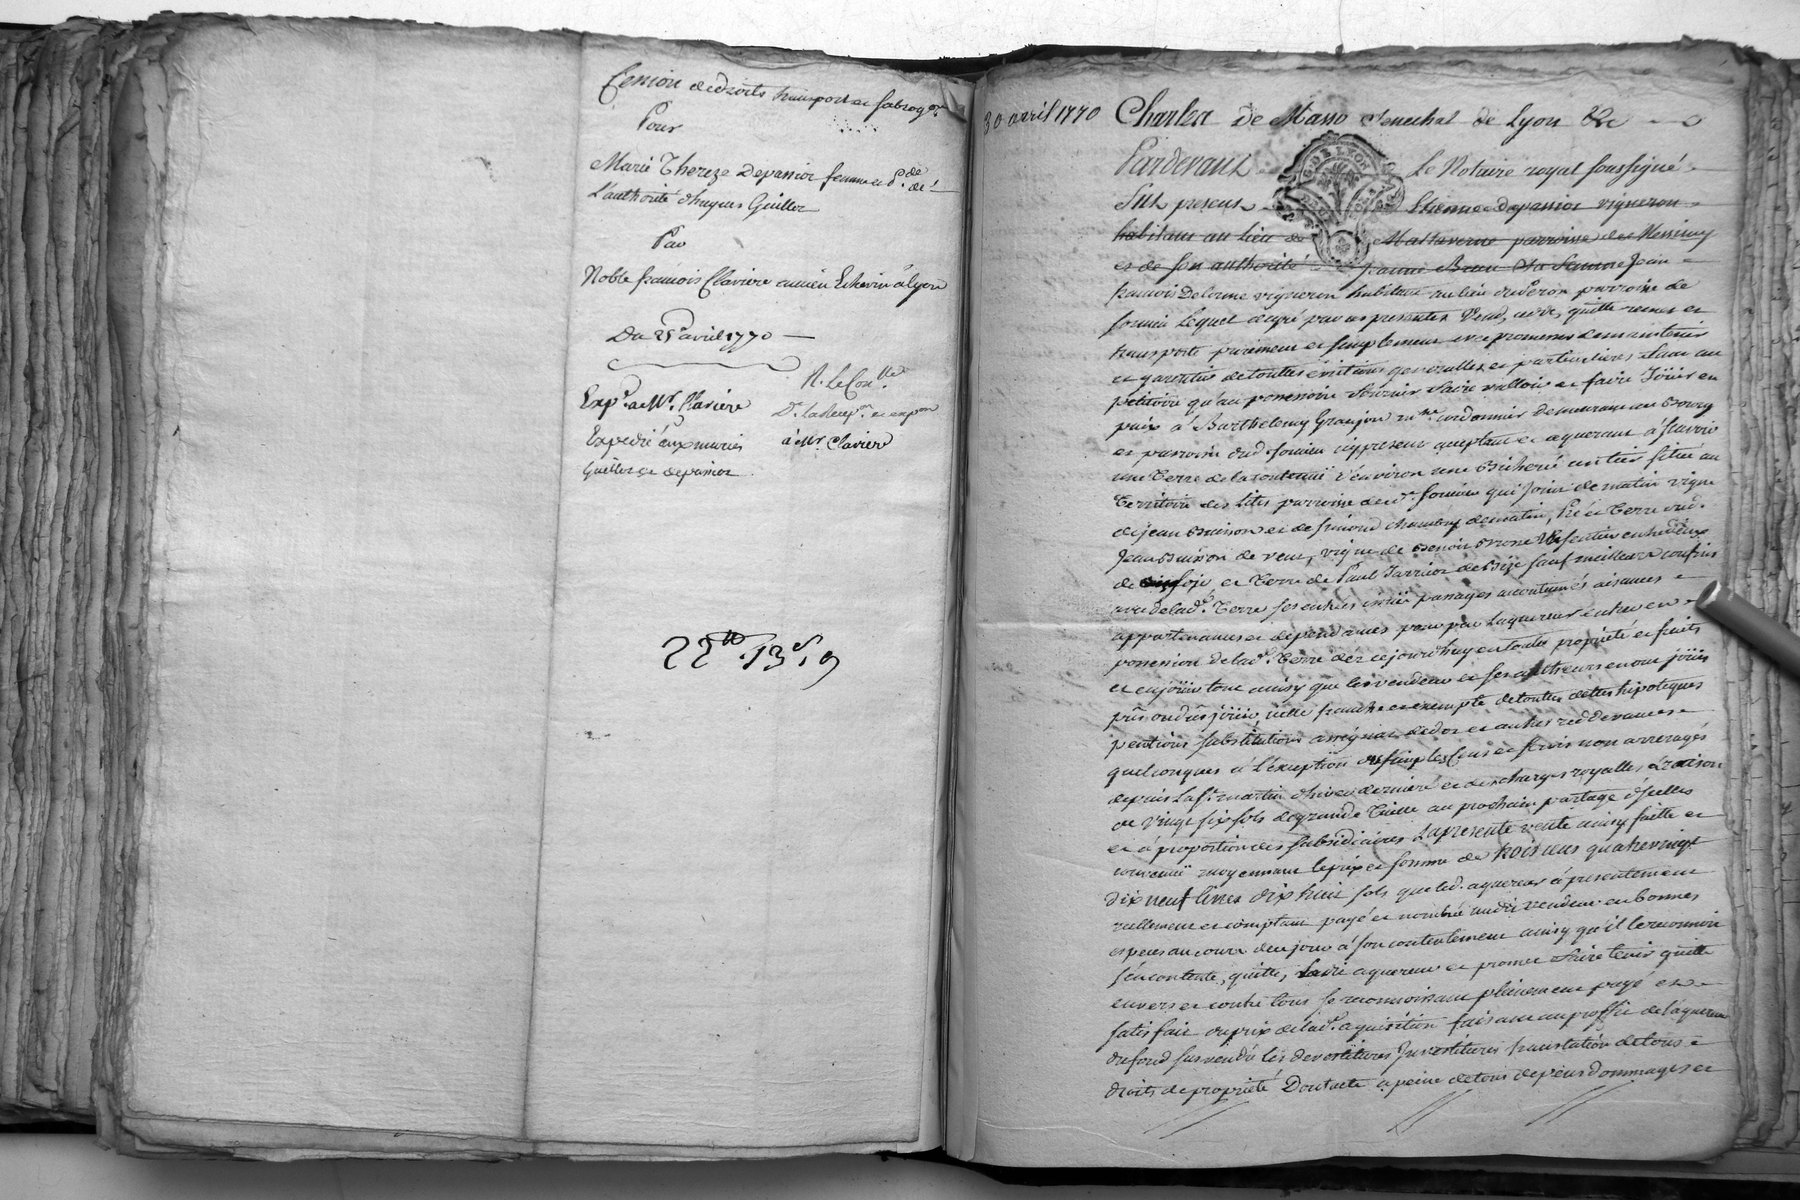 Cession de droits transport et subrog.on
Pour
Marie Thereze Depassior femme et d.e de
L'authorité d'hugues Guillot
Par
Noble francois Claviere ancien Echevin a lyon
Du 25 avril 1770
Exp.é a Mr. Claviere
Expedié aux mariés
Guillot et depassior
R. Le Con.lle
D.t la Recep.on et exp.on
à Mr. Claviere
22.tt 13.s 9
30 avril 1770 Charles de Masso Senechal de Lyon &c
Pardevant Le Notaire royal soussigné
fut present Etienne Depassior vigneron
habitant au lieu de Mallaverne parroisse de Messimy
et de son authorité jeanne Brun sa femme Jean
francois Delorme vigneron habitant au lieu du Peron parroisse de
Soucieu Lequel de gré par ces presentes Vend, cede, quitte remet et
transporte purement et simplement avec promesses de maintenir
et garentir de toutes évictions generalles et particulieres tant au
petitoire qu'au possessoire fournir faire valloir et faire Jöuir en
paix à Barthelemy Granjon m.tre cordonnier demeurant au Bourg
et parroisse dud. Soucieu icy present acceptant et aquereur à scavoir
une Terre de la contenuë d'environ une Bicherée un tiers située au
Territoire des Littes parroisse dud. Soucieu qui joint de matin vigne
de jean Buisson et de
Jean Buisson de vent, vigne de Benoit
de soir et Terre de Paul Jarricot de Bize sauf meilleurs confins
avec de lad. Terre ses entrées issuë passages accoutumés aisances
appartenances et dependances pour par Laquereur entrer en
possession de lad. Terre déz cejourdhuy en toute propriété et fruits
et en jöuir tout ainsy que led vendeur et ses autheurs en ont jöui
pûs ou dûs jöuir, icelle franche et exempte de toutes dettes hipoteques
pentions substitutions assignat de dot et autres reddevances
quelconques à L'éxception des simples Cens et servis non arreragés
depuis La St. martin d'hiver derniere et des charges royalles à raison
de vingt six sols de grande Taille au prochain partage d'icelles
et à proportion des subsidiaires La presente vente ainsy faitte et
convenuë moyennant le prix et somme de trois cens quatrevingt
dix neuf livres dix huit sols que led. aquereur à presentement
reellement et comptant payé et nombré audit vendeur en bonnes
especes au cours de ce jour à son contentement ainsy qu'il le reconnoit
s'en contente, quitte, Ledit aquereur et promet faire tenir quitte
envers et contre tous se reconnoissant pleinement payé et
satisfait du prix de lad. aquisition faisant au proffit de l'aquereur
du fond susvendu les devestitures Jnvestitures translation de tous
droits de propriété Dont acte a peine de tous depens dommages et